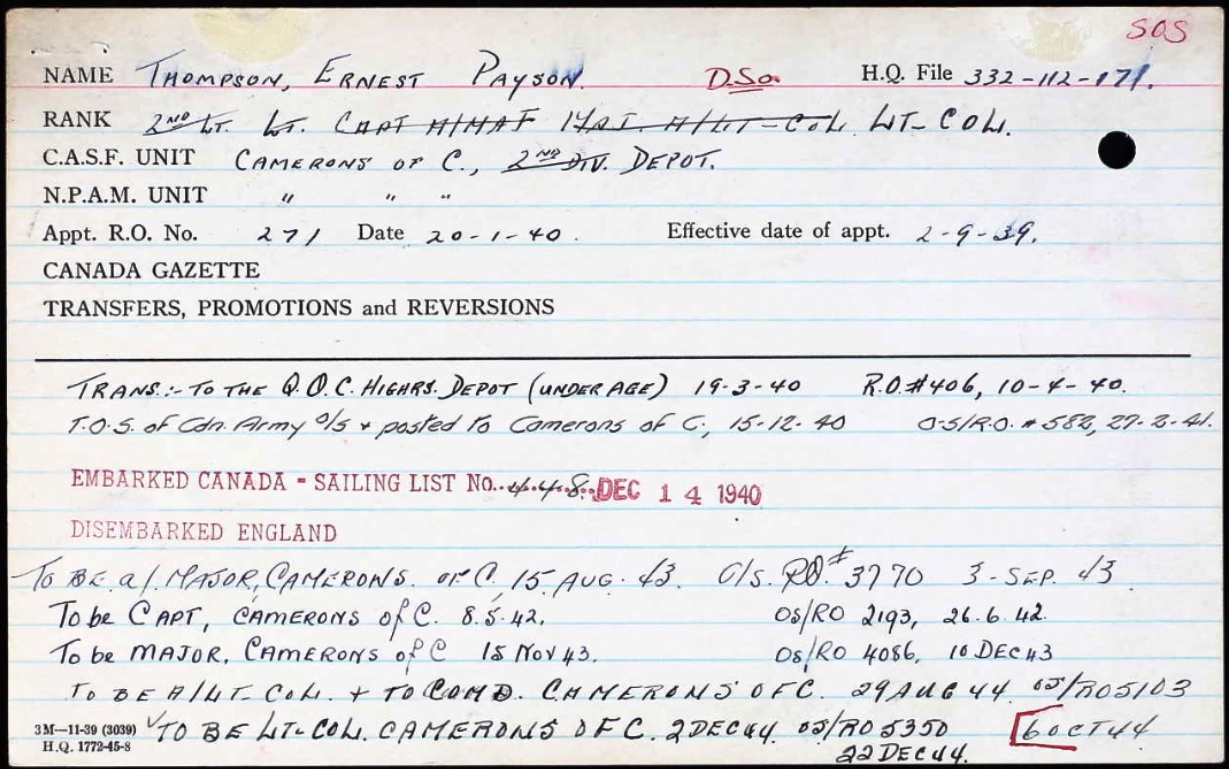 SOS
NAME THOMPSON, ERNEST PAYSON. DSO. H.Q. File 332-112-171.
RANK 2ND LT. LT. CAPT A/MAJ MAJ. A/LT-COL LT-COL.
C.A.S.F. UNIT CAMERONS OF C., 2ND DIV. DEPOT.
N.P.A.M. UNIT " " "
Appt. R.O. No. 271 Date 20-1-40. Effective date of appt. 2-9-39.
CANADA GAZETTE
TRANSFERS, PROMOTIONS and REVERSIONS
TRANS.:- TO THE Q.O.C. HIGHRS. DEPOT (UNDER AGE) 19-3-40 R.O.#406, 10-4-40.
T.O.S. of Cdn. Army o/s + posted to Camerons of C., 15-12-40 O-S/R.O. #582, 27-2-41.
EMBARKED CANADA - SAILING LIST No. 448. DEC 14 1940
DISEMBARKED ENGLAND
TO BE a/. MAJOR, CAMERONS. OF C. 15 AUG. 43. O/S. RO.# 3770 3-SEP. 43
To be CAPT, CAMERONS of C. 8.5.42. OS/RO 2193, 26.6.42.
To be MAJOR, CAMERONS of C 15 Nov 43. OS/RO 4086, 10 DEC 43
TO BE A/LT-COL. + TO COMD. CAMERONS OF C. 29 AUG 44 OS/RO 5103
3M—11-39 (3039) ✓ TO BE LT-COL. CAMERONS OF C. 2 DEC 44. OS/RO 5350 [6 OCT 44
H.Q. 1772-45-8 22 DEC 44.